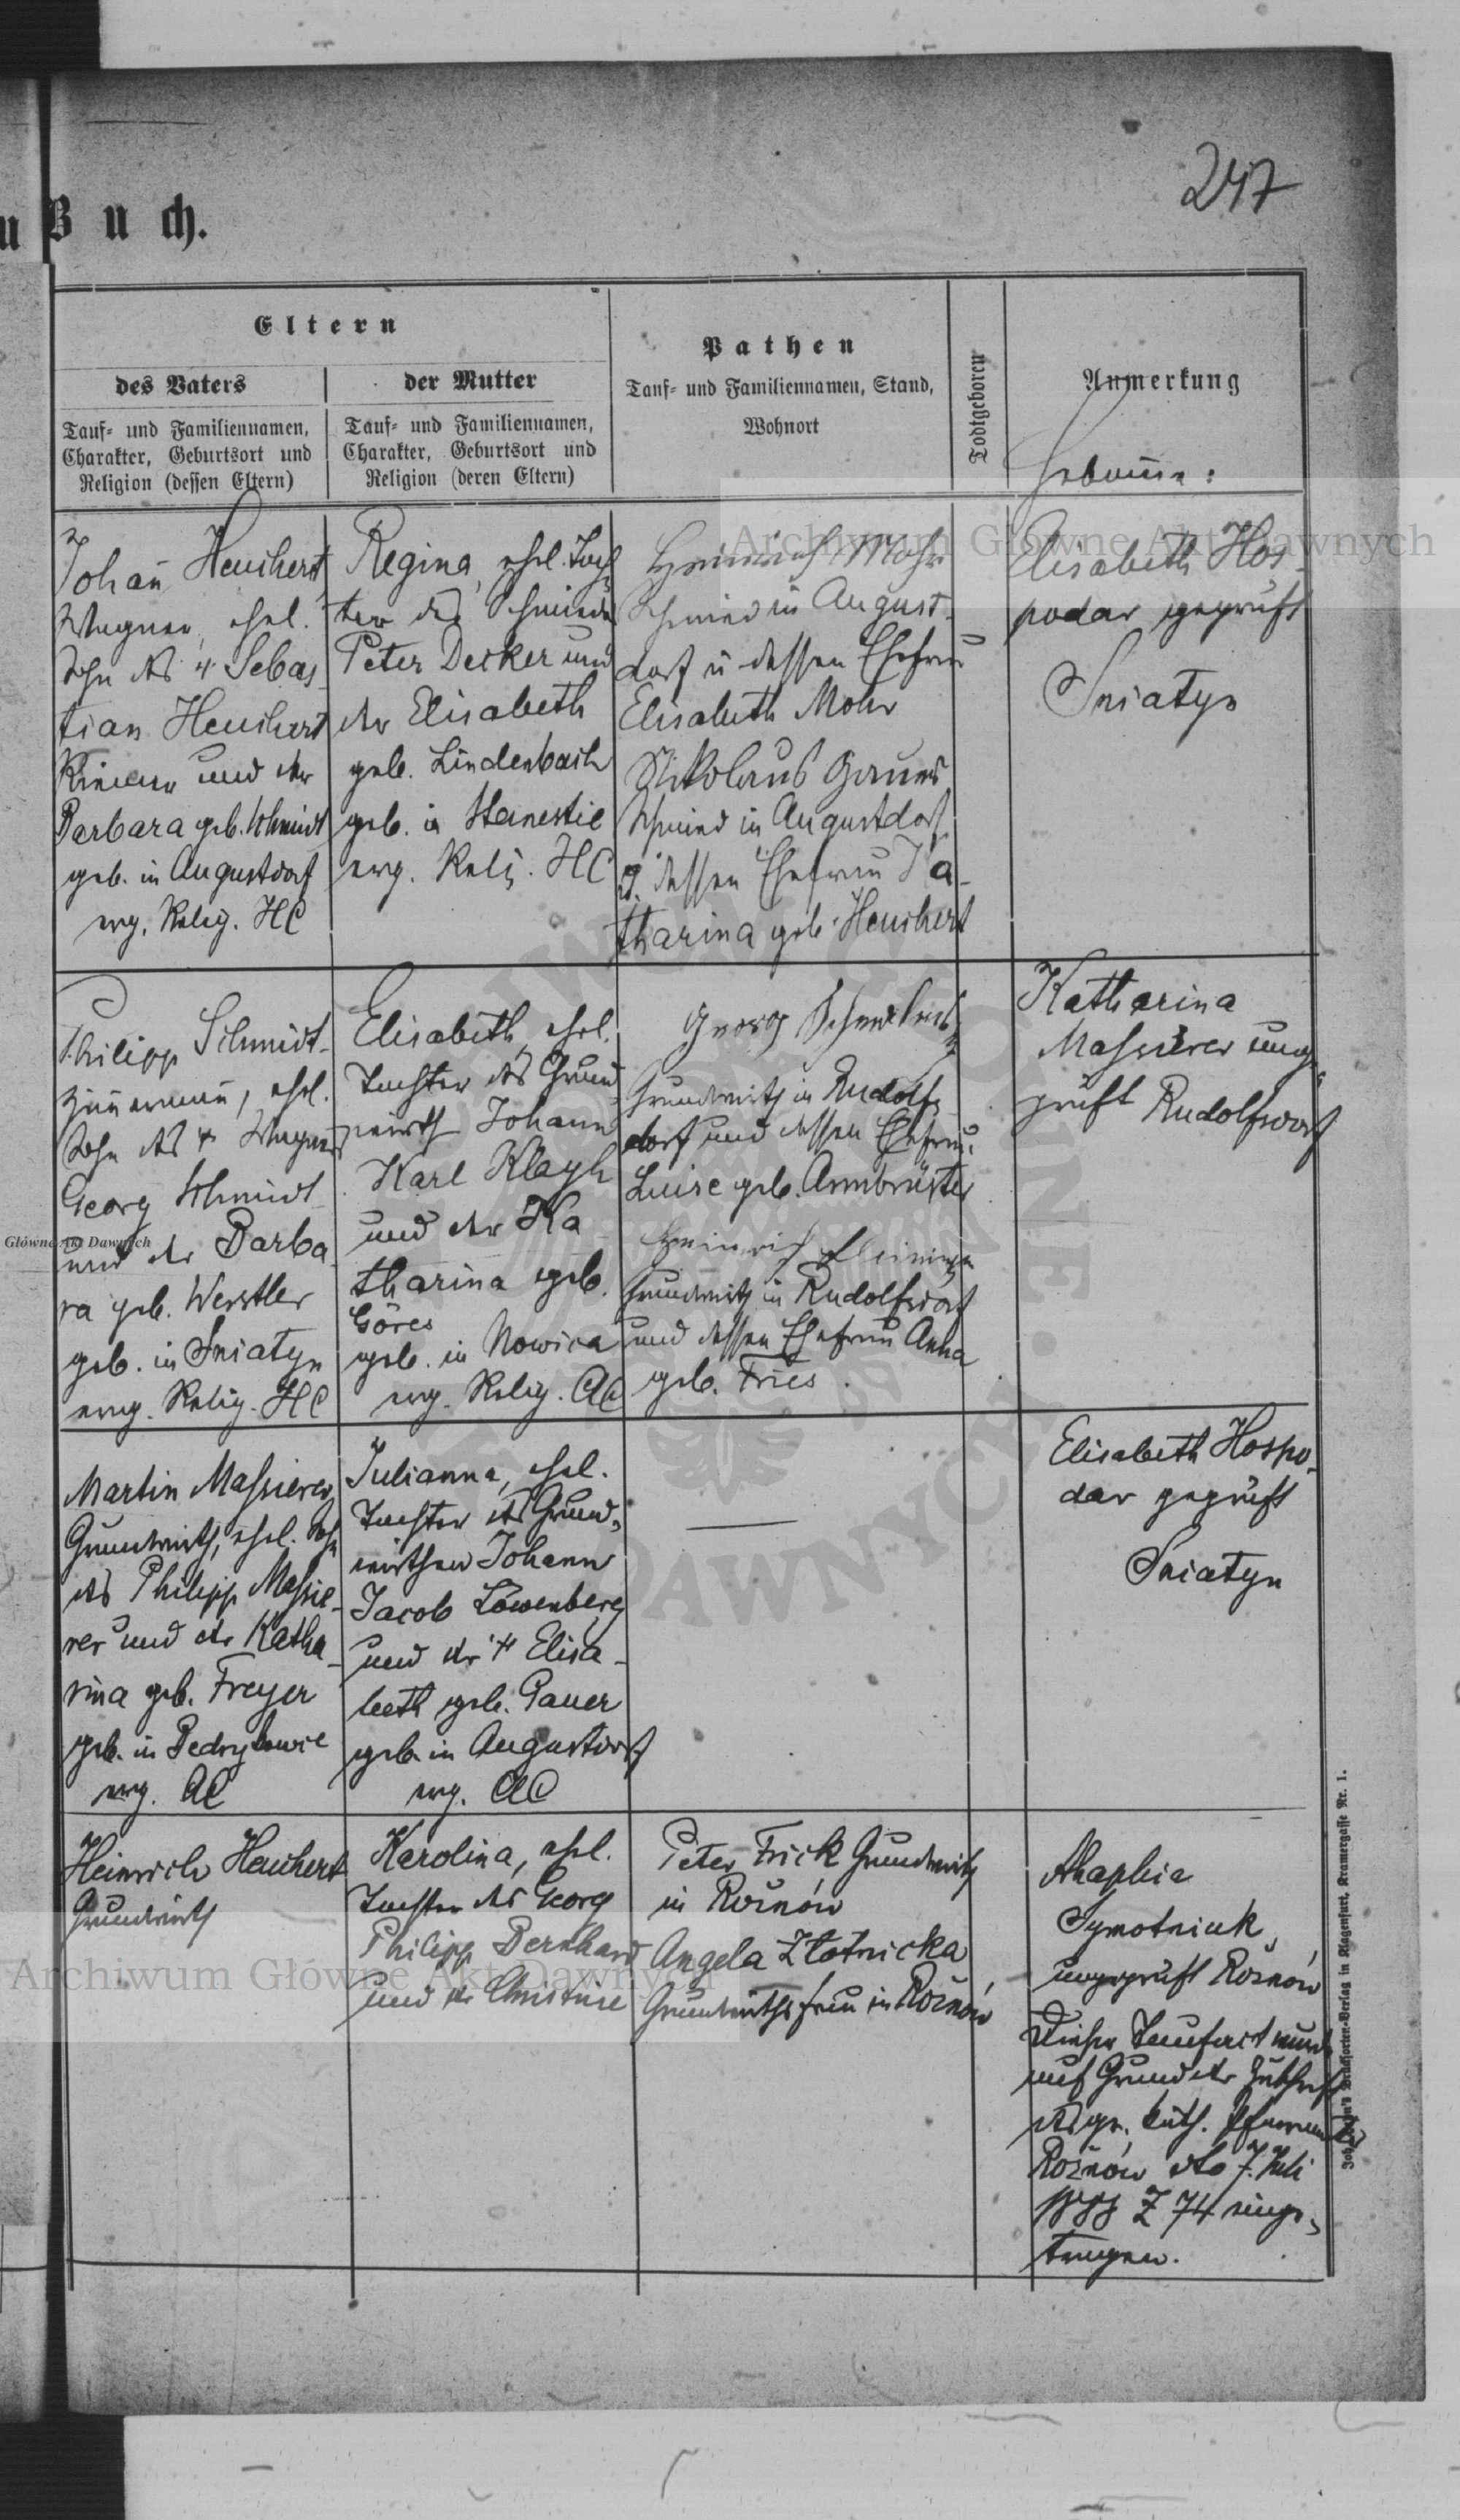 247
u Buch.
Eltern
des Vaters
Tauf- und Familiennamen,
Charakter, Geburtsort und
Religion (dessen Eltern)
der Mutter
Tauf- und Familiennamen,
Charakter, Geburtsort und
Religion (deren Eltern)
Pathen
Tauf- und Familiennamen, Stand,
Wohnort
Todtgeboren
Anmerkung
Hebamme:
Johan̄ Heuchert
Wagner, ehel.
Sohn des † Sebas-
tian Heuchert
und der
Barbara geb. Schmidt
geb. in Augustdorf
evg. Relig. HC
Regina, ehel. Toch-
ter des Schmieds
Peter Decker und
der Elisabeth
geb. Lindenbach
geb. in Stanestie
evg. Relig. HC
Heinrich Mohr
Schmied in August-
dorf u dessen Ehefrau
Elisabeth Mohr
Nikolaus Gauer
Schmied in Augustdorf
u. dessen Ehefrau Ka-
tharina geb. Heuchert
Elisabeth Hos-
podar geprüft
Sniatyn
Philipp Schmidt
Zim̄erman̄, ehel.
Sohn des † Wagners
Georg Schmidt
und der Barba-
ra geb. Werstler
geb. in Sniatyn
evng. Relig. HC
Elisabeth, ehel.
Tochter des Grund-
wirth Johann
Karl Klayh
und der Ka-
tharina geb.
Göres
geb. in Nowica
evg. Relig. AC
Georg
Grundwirth in Rudolfs-
dorf und dessen Ehefrau
Luise geb. Armbrüster
Heinrich
Grundwirth in Rudolfsdorf
und dessen Ehefrau Anna
geb. Fries.
Katharina
Massierer unge-
prüft Rudolfsdorf
Martin Massierer,
Grundwirth, ehel. Sohn
des Philipp Massie-
rer und der Katha-
rina geb. Freyer
geb. in Pedrylowce
evg. AC
Julianna, ehel.
Tochter des Grund-
wirthen Johann
Jacob Löwenberg
und der † Elisa-
beth geb. Gauer
geb. in Augustdorf
evg. AC
Elisabeth Hospo-
dar geprüft
Sniatyn
Heinrich Heuchert
Grundwirth
Karolina, ehel.
Tochter des Georg
Philipp Bernhard
und der Christine
Peter Frick Grundwirth
in Rožnów
Angela Złotnicka
Grundwirthsfrau in Rožnów
Ahaphia
Symotniuk,
ungeprüft Rožnów
Dieser Taufact wurde
auf Grund der Zuschrift
des gr. kath. Pfarramtes
Rožnów dto 7. Juli
1888 Z 74 einge-
tragen.
Verlag in Klagenfurt, Kramergasse Nr. 1.
Archiwum Główne Akt Dawnych
Główne Akt Dawnych
Archiwum Główne Akt Dawnych